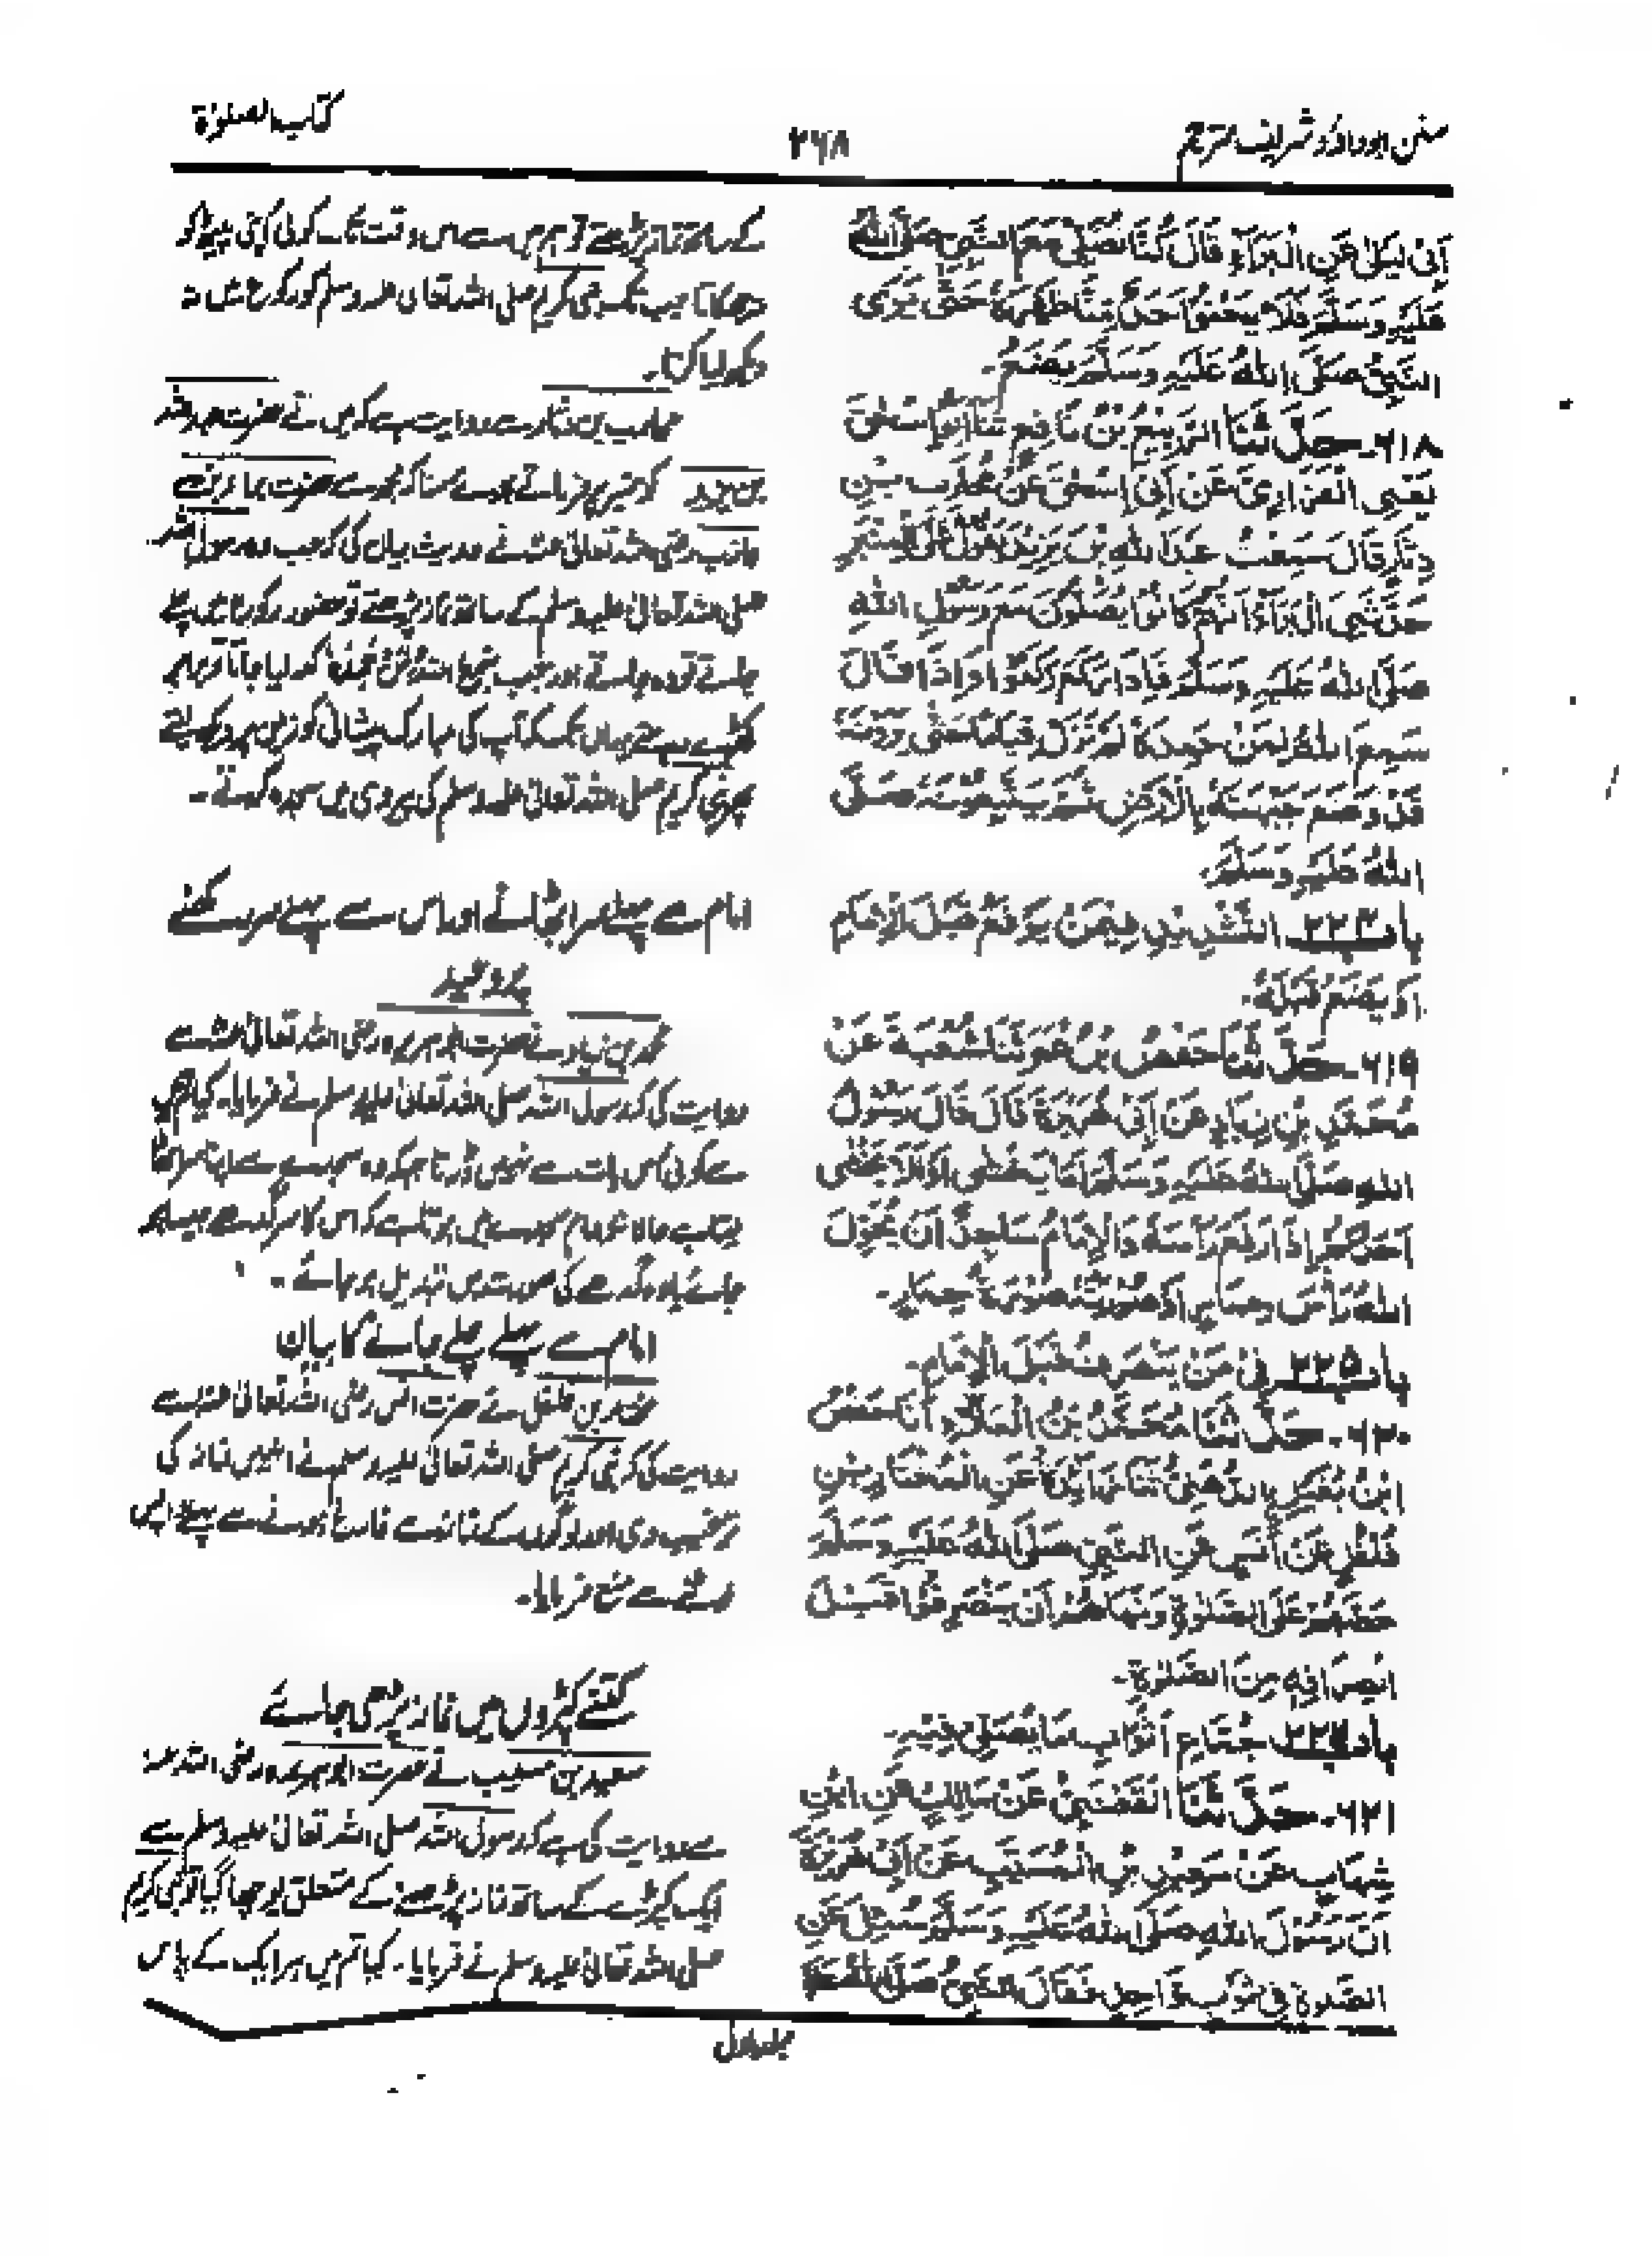 سنن ابوداؤد شریف مترجم
۲۶۸
کتاب الصلوٰۃ
اَبِیْ لَیْلٰی عَنِ الْبَرَآءِ قَالَ کُنَّا نُصَلِّیْ مَعَ النَّبِیِّ صَلَّی اللّٰهُ
عَلَیْهِ وَسَلَّمَ فَلَا یَحْنُوْا اَحَدٌ مِّنَّا ظَهْرَهٗ حَتّٰی یَرَی
النَّبِیَّ صَلَّی اللّٰهُ عَلَیْهِ وَسَلَّمَ یَضَعُ۔
۶۱۸۔ حَدَّثَنَا الرَّبِیْعُ بْنُ نَافِعٍ ثَنَا اَبُوْ اِسْحٰقَ
یَعْنِی الْفَزَارِیَّ عَنْ اَبِیْ اِسْحٰقَ عَنْ مُحَارِبِ بْنِ
دِثَارٍ قَالَ سَمِعْتُ عَبْدَ اللّٰهِ بْنَ یَزِیْدَ یَقُوْلُ عَلَی الْمِنْبَرِ
حَدَّثَنِی الْبَرَآءُ اَنَّهُمْ کَانُوْا یُصَلُّوْنَ مَعَ رَسُوْلِ اللّٰهِ
صَلَّی اللّٰهُ عَلَیْهِ وَسَلَّمَ فَاِذَا رَکَعَ رَکَعُوْا وَاِذَا قَالَ
سَمِعَ اللّٰهُ لِمَنْ حَمِدَهٗ لَمْ نَزَلْ قِیَامًا حَتّٰی یَرَوْنَهٗ
قَدْ وَضَعَ جَبْهَتَهٗ بِالْاَرْضِ ثُمَّ یَتَّبِعُوْنَهٗ صَلَّی
اللّٰهُ عَلَیْهِ وَسَلَّمَ۔
باب التَّشْدِیْدِ فِیْمَنْ یَرْفَعُ قَبْلَ الْاِمَامِ
اَوْ یَضَعُ قَبْلَهٗ۔
۶۱۹۔ حَدَّثَنَا حَفْصُ بْنُ عُمَرَ ثَنَا شُعْبَةُ عَنْ
مُحَمَّدِ بْنِ زِیَادٍ عَنْ اَبِیْ هُرَیْرَةَ قَالَ قَالَ رَسُوْلُ
اللّٰهِ صَلَّی اللّٰهُ عَلَیْهِ وَسَلَّمَ اَمَا یَخْشٰی اَوْ اَلَا یَخْشٰی
اَحَدُکُمْ اِذَا رَفَعَ رَاْسَهٗ وَالْاِمَامُ سَاجِدٌ اَنْ یُّحَوِّلَ
اللّٰهُ رَاْسَهٗ رَاْسَ حِمَارٍ اَوْ صُوْرَتَهٗ صُوْرَةَ حِمَارٍ۔
باب ۲۲۵ فِیْ مَنْ یَنْصَرِفُ قَبْلَ الْاِمَامِ۔
۶۲۰۔ حَدَّثَنَا مُحَمَّدُ بْنُ الْعَلَآءِ اَنَا حَفْصُ
ابْنُ بُغَیْلٍ الدُّهْنِیُّ ثَنَا زَائِدَةُ عَنِ الْمُخْتَارِ بْنِ
فُلْفُلٍ عَنْ اَنَسٍ عَنِ النَّبِیِّ صَلَّی اللّٰهُ عَلَیْهِ وَسَلَّمَ
حَضَّهُمْ عَلَی الصَّلٰوةِ وَنَهَاهُمْ اَنْ یَّنْصَرِفُوْا قَبْلَ
انْصِرَافِهٖ مِنَ الصَّلٰوةِ۔
باب جُمَّاعِ اَثْوَابِ مَا یُصَلّٰی فِیْهِ۔
۶۲۱۔ حَدَّثَنَا الْقَعْنَبِیُّ عَنْ مَالِكٍ عَنِ ابْنِ
شِهَابٍ عَنْ سَعِیْدِ بْنِ الْمُسَیَّبِ عَنْ اَبِیْ هُرَیْرَةَ
اَنَّ رَسُوْلَ اللّٰهِ صَلَّی اللّٰهُ عَلَیْهِ وَسَلَّمَ سُئِلَ عَنِ
الصَّلٰوةِ فِیْ ثَوْبٍ وَّاحِدٍ فَقَالَ النَّبِیُّ صَلَّی اللّٰهُ
کے ساتھ نماز پڑھتے تو ہم میں سے اس وقت تک کوئی اپنی پیٹھ کو
نہ جھکاتا جب تک نبی کریم صلی اللہ تعالیٰ علیہ وسلم کو رکوع میں نہ
محارب بن دثار سے روایت ہے کہ میں نے حضرت عبد اللہ
بن یزید کو منبر پر فرماتے ہوئے سنا کہ مجھ سے حضرت براء بن
عازب رضی اللہ تعالیٰ عنہ نے حدیث بیان کی کہ جب وہ رسول اللہ
صلی اللہ تعالیٰ علیہ وسلم کے ساتھ نماز پڑھتے تو حضور رکوع میں چلے
جاتے تو وہ جاتے اور جب سمع اللہ لمن حمدہ کہہ لیا جاتا تو ہم
کھڑے رہتے یہاں تک کہ آپ کی مبارک پیشانی کو زمین پر دیکھ لیتے
پھر نبی کریم صلی اللہ تعالیٰ علیہ وسلم کی پیروی میں سجدہ کرتے۔
امام سے پہلے سر اٹھانے اور اس سے پہلے سر رکھنے
پر وعید
محمد بن زیاد نے حضرت ابوہریرہ رضی اللہ تعالیٰ عنہ سے
روایت کی کہ رسول اللہ صلی اللہ تعالیٰ علیہ وسلم نے فرمایا۔ کیا تم میں
سے کوئی اس بات سے نہیں ڈرتا جبکہ وہ سجدے سے اپنا سر اٹھا
لیتا ہے حالانکہ امام سجدے میں ہوتا ہے کہ اس کا سر گدھے جیسا ہو
جائے یا وہ گدھے کی صورت میں تبدیل ہو جائے۔
امام سے پہلے چلے جانے کا بیان
مختار بن فلفل نے حضرت انس رضی اللہ تعالیٰ عنہ سے
روایت کی کہ نبی کریم صلی اللہ تعالیٰ علیہ وسلم نے انہیں نماز کی
ترغیب دی اور لوگوں کے نماز سے فارغ ہونے سے پہلے واپس
لوٹنے سے منع فرمایا۔
کتنے کپڑوں میں نماز پڑھی جائے
سعید بن مسیب نے حضرت ابوہریرہ رضی اللہ عنہ
سے روایت کی ہے کہ رسول اللہ صلی اللہ تعالیٰ علیہ وسلم سے
ایک کپڑے کے ساتھ نماز پڑھنے کے متعلق پوچھا گیا تو نبی کریم
صلی اللہ تعالیٰ علیہ وسلم نے فرمایا۔ کیا تم میں ہر ایک کے پاس
جلد اول